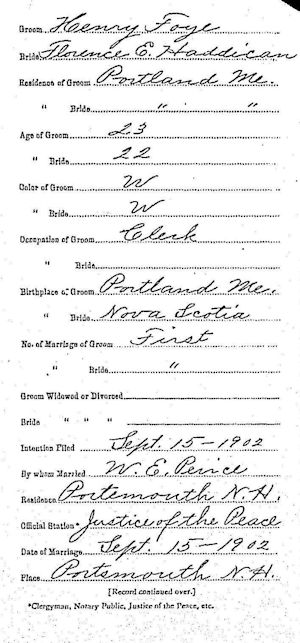 Groom Henry Foye
Bride Florence E. Haddican
Residence of Groom Portland Me.
" Bride " "
Age of Groom 23
" Bride 22
Color of Groom W
" Bride W
Occupation of Groom Clerk
" Bride
Birthplace of Groom Portland Me.
" Bride Nova Scotia
No. of Marriage of Groom First
" Bride "
Groom Widowed or Divorced
Bride " " "
Intention Filed Sept. 15-1902
By whom Married W. E. Peirce
Residence Portsmouth N.H.
Official Station* Justice of the Peace
Date of Marriage Sept. 15-1902
Place Portsmouth N.H.
[Record continued over.]
*Clergyman, Notary Public, Justice of the Peace, etc.